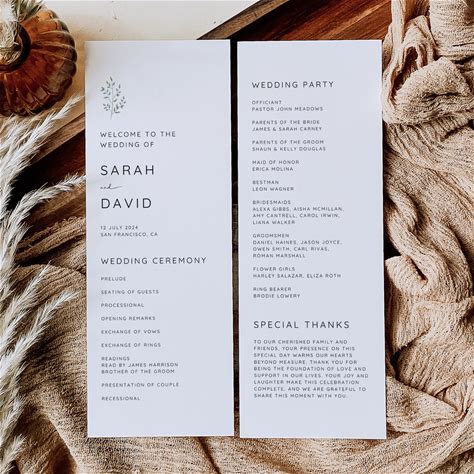 WELCOME TO THE
WEDDING OF
SARAH
and
DAVID
12 JULY 2024
SAN FRANCISCO, CA
WEDDING CEREMONY
PRELUDE
SEATING OF GUESTS
PROCESSIONAL
OPENING REMARKS
EXCHANGE OF VOWS
EXCHANGE OF RINGS
READINGS
READ BY JAMES HARRISON
BROTHER OF THE GROOM
PRESENTATION OF COUPLE
RECESSIONAL
WEDDING PARTY
OFFICIANT
PASTOR JOHN MEADOWS
PARENTS OF THE BRIDE
JAMES & SARAH CARNEY
PARENTS OF THE GROOM
SHAUN & KELLY DOUGLAS
MAID OF HONOR
ERICA MOLINA
BESTMAN
LEON WAGNER
BRIDESMAIDS
ALEXA GIBBS, AISHA MCMILLAN,
AMY CANTRELL, CAROL IRWIN,
LIANA WALKER
GROOMSMEN
DANIEL HAINES, JASON JOYCE,
OWEN SMITH, CARL RIVAS,
ROMAN MARSHALL
FLOWER GIRLS
HARLEY SALAZAR, ELIZA ROTH
RING BEARER
BRODIE LOWERY
SPECIAL THANKS
TO OUR CHERISHED FAMILY AND
FRIENDS, YOUR PRESENCE ON THIS
SPECIAL DAY WARMS OUR HEARTS
BEYOND MEASURE. THANK YOU FOR
BEING THE FOUNDATION OF LOVE AND
SUPPORT IN OUR LIVES. YOUR JOY AND
LAUGHTER MAKE THIS CELEBRATION
COMPLETE, AND WE ARE GRATEFUL TO
SHARE THIS MOMENT WITH YOU.